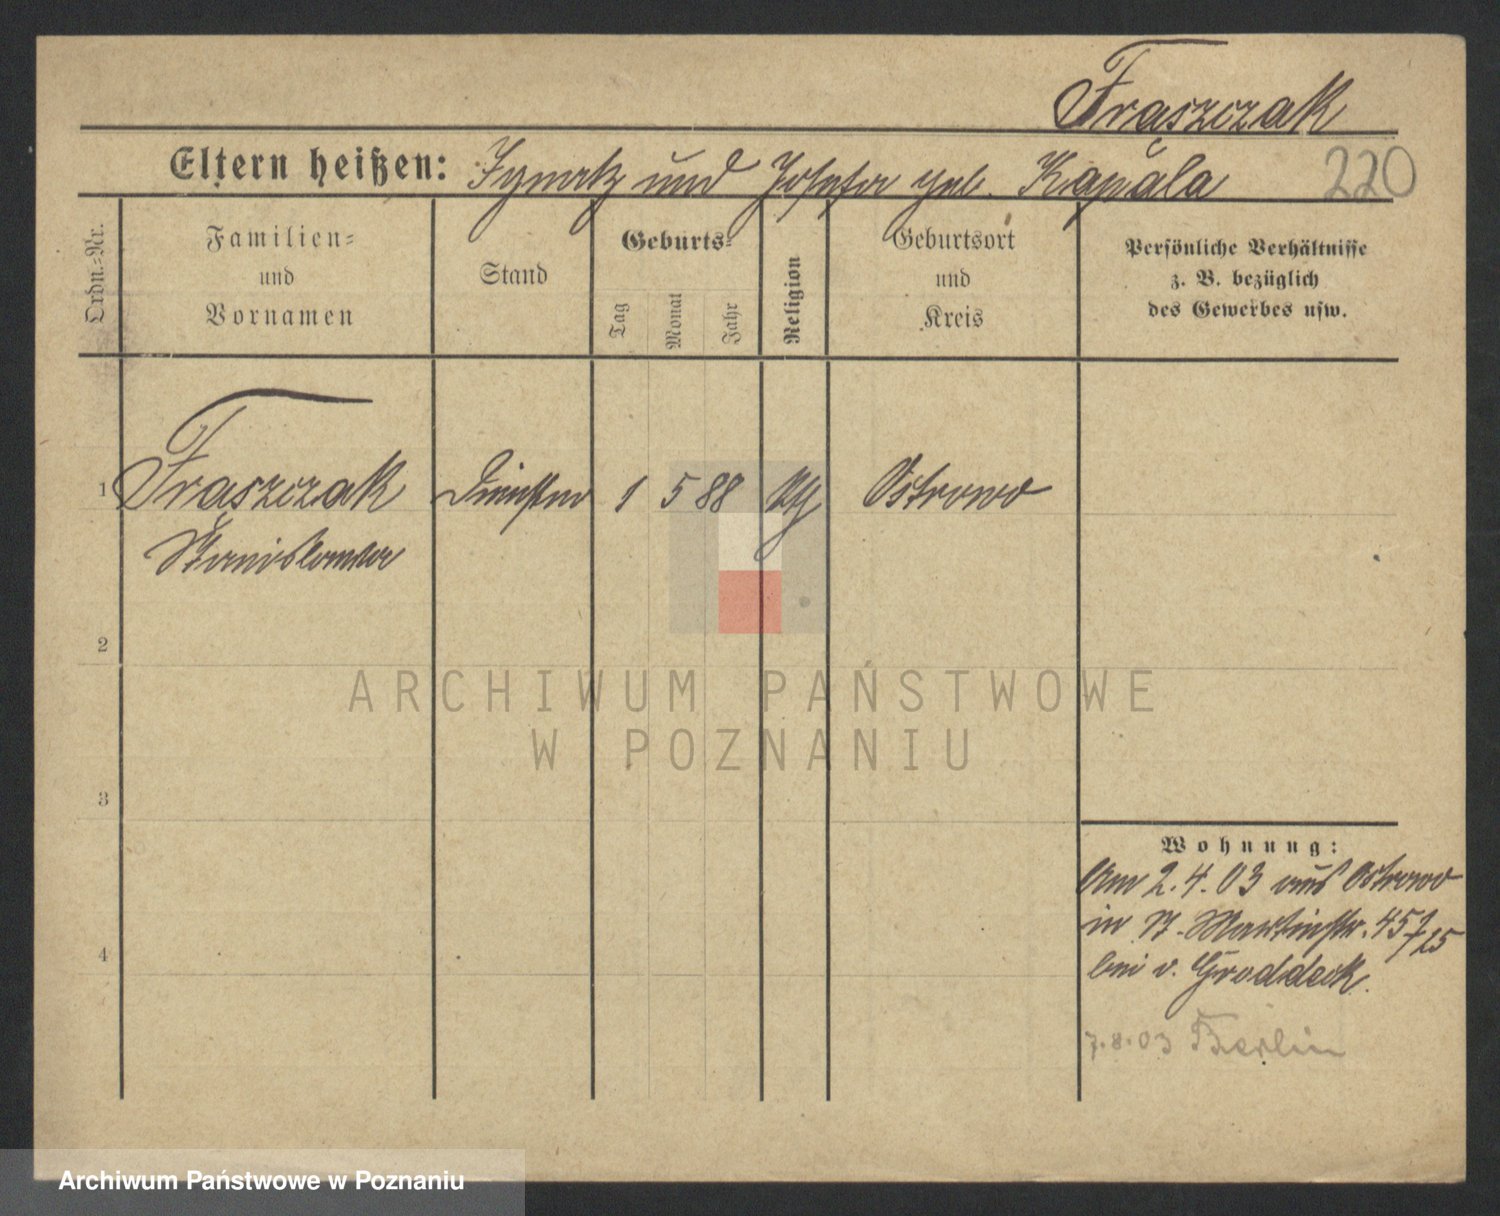 Fraszczak
Eltern heißen: Ignatz und Josefa geb. Kapala 220
Ordn.-Nr.
Familien-
und
Vornamen
Stand
Geburts-
Tag
Monat
Jahr
Religion
Geburtsort
und
Kreis
Persönliche Verhältnisse
z. B. bezüglich
des Gewerbes usw.
1 Fraszczak 1 5 88 Ostrowo
Stanislawa
2
ARCHIWUM PAŃSTWOWE
W POZNANIU
3
Wohnung:
Am 2.4.03 aus Ostrowo
in St. Martinstr. 45
bei v. Groddeck.
4
7.8.03 Berlin
Archiwum Państwowe w Poznaniu